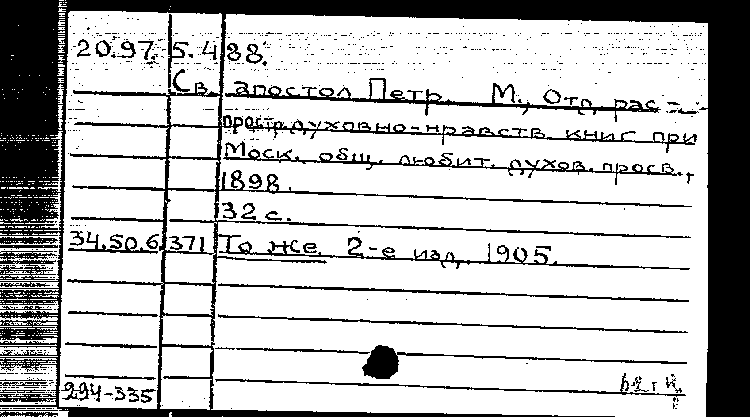 20.97.5.488.
Св. апостол Петр. М., Отд. рас-
простр. духовно-нравств. книг при
Моск. общ. любит. духов. просв.,
1898.
32 с.
34.50.6.371 То же. 2-е изд. 1905.
294-335